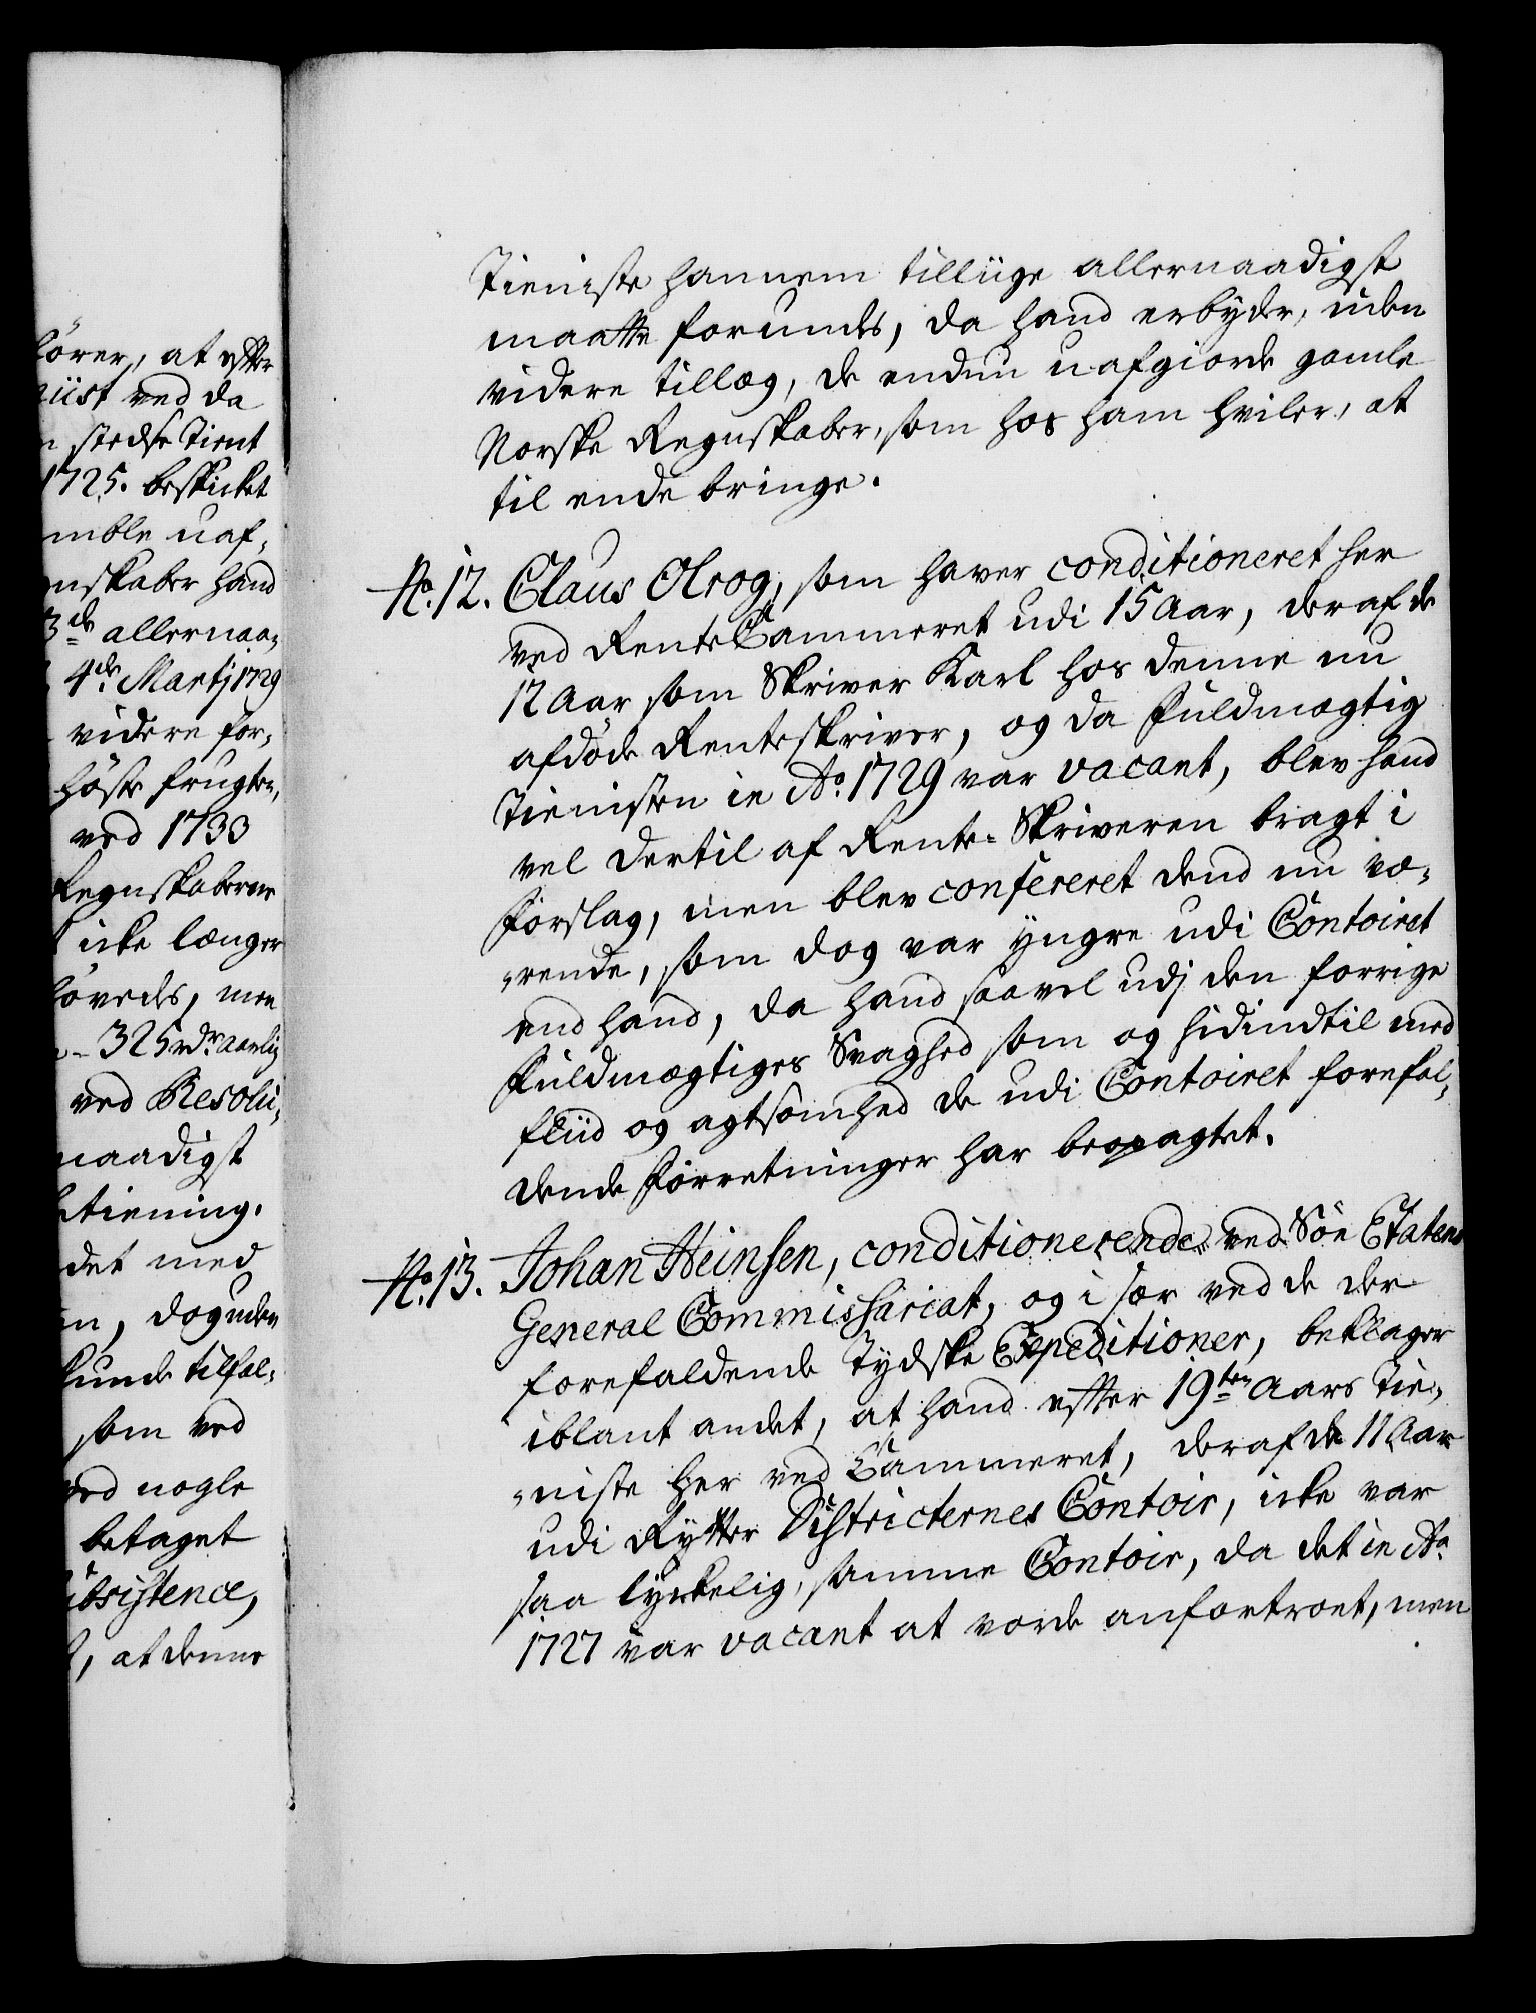 hörer, at efter
niist ved da
n stedse tient
1725. beskicket
amble uaf„
gnskaber hand
3de allernaa„
4de Martj 1729
videre for„
höste frugten,
ved 1733
Regnskaberne
icke længer
høvedes, men
325 rdr aarlig
ved Resolu„
naadigst
betiening.
det med
en, dog uden
kunde tilfal„
som ved
ved nogle
betaget
Subsistence,
at denne
Tieniste hannem tilliige allernaadigst
maatte forundes, da hand erbyder, uden
videre tillæg, de endnu uafgiorde gamle
Norske Regnskaber, som hos ham hviler, at
til ende bringe.
No. 12. Claus Olrog, som haver conditioneret her
ved RenteCammeret udi 15 Aar, deraf de
12 Aar som Skriver Karl hos denne nu
afdöde Renteskriver, og da Fuldmægtig
Tienisten in Ao. 1729 var vacant, blev hand
vel dertil af Rente-Skriveren bragt i
Forslag, men blev confereret dend nu væ„
„rende, som dog var yngre udi Contoiret
end hand, da hand saavel udj den forrige
Fuldmægtiges Svaghed som og hidindtil med
fliid og agtsomhed de udi Contoiret forefal„
dende Forretninger har beobagtet.
No. 13. Johan Heinsen, conditionerende ved Söe Etatens
General Commissariat, og i sær ved de der
forefaldende Tydske Expeditioner, beklager
iblant andet, at hand efter 19ten Aars Tie„
„niste her ved Cammeret, deraf de 11 Aar
udi Rytter Districternes Contoir, icke var
saa lyckelig, samme Contoir, da det in Ao
1727 var vacant at vorde anfortroet, men